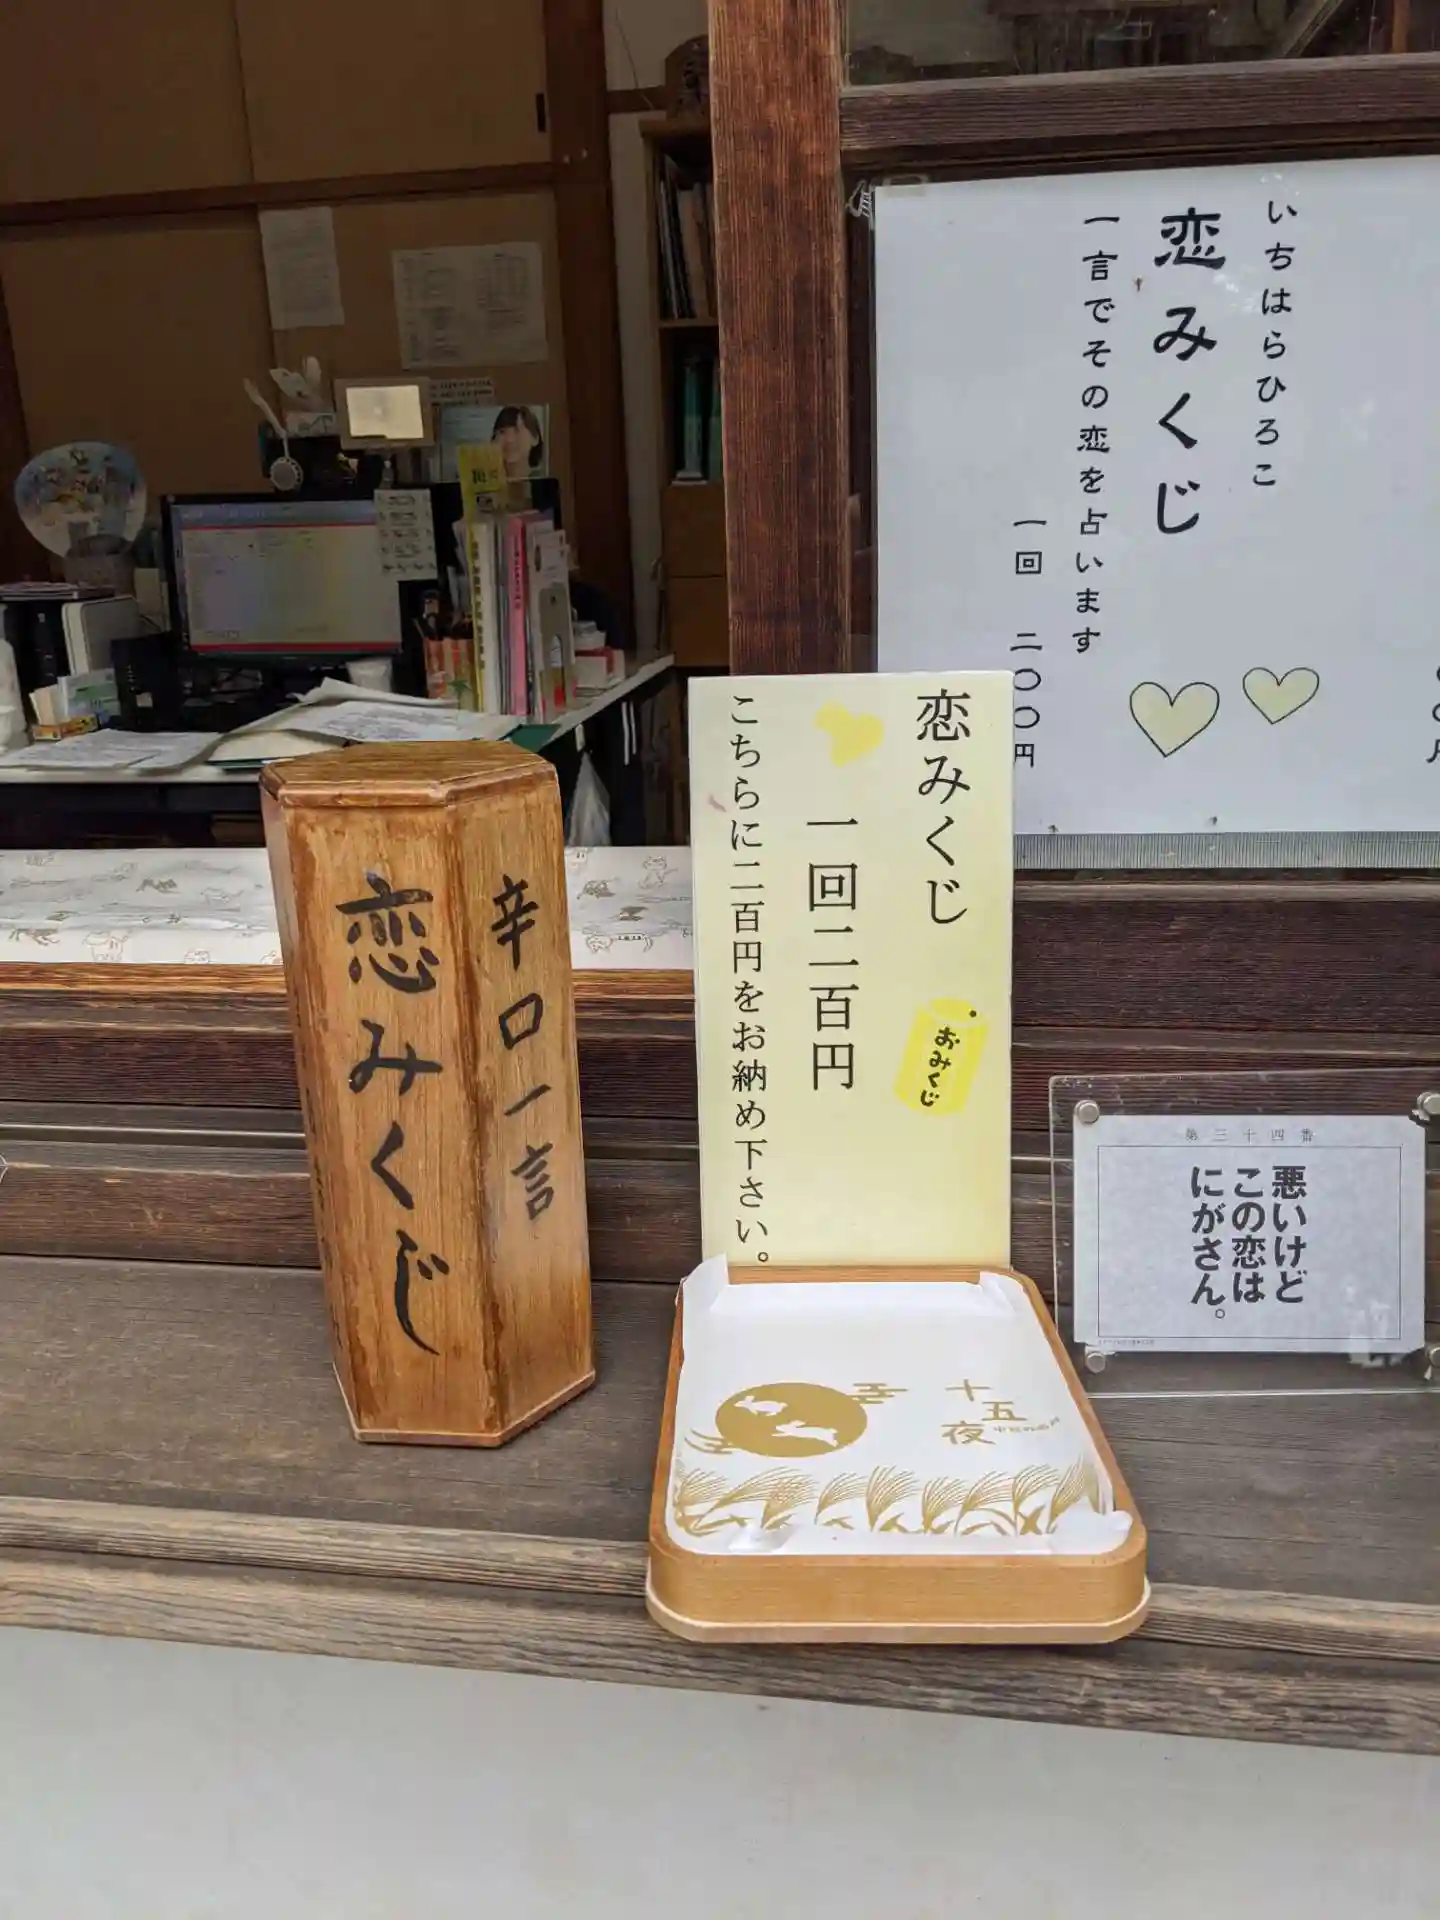 いちはらひろこ
恋みくじ
一言でその恋を占います
一回 二〇〇円
恋みくじ
一回二百円
こちらに二百円をお納め下さい。
おみくじ
辛口一言
恋みくじ
第三十四番
悪いけど
この恋は
にがさん。
十五夜